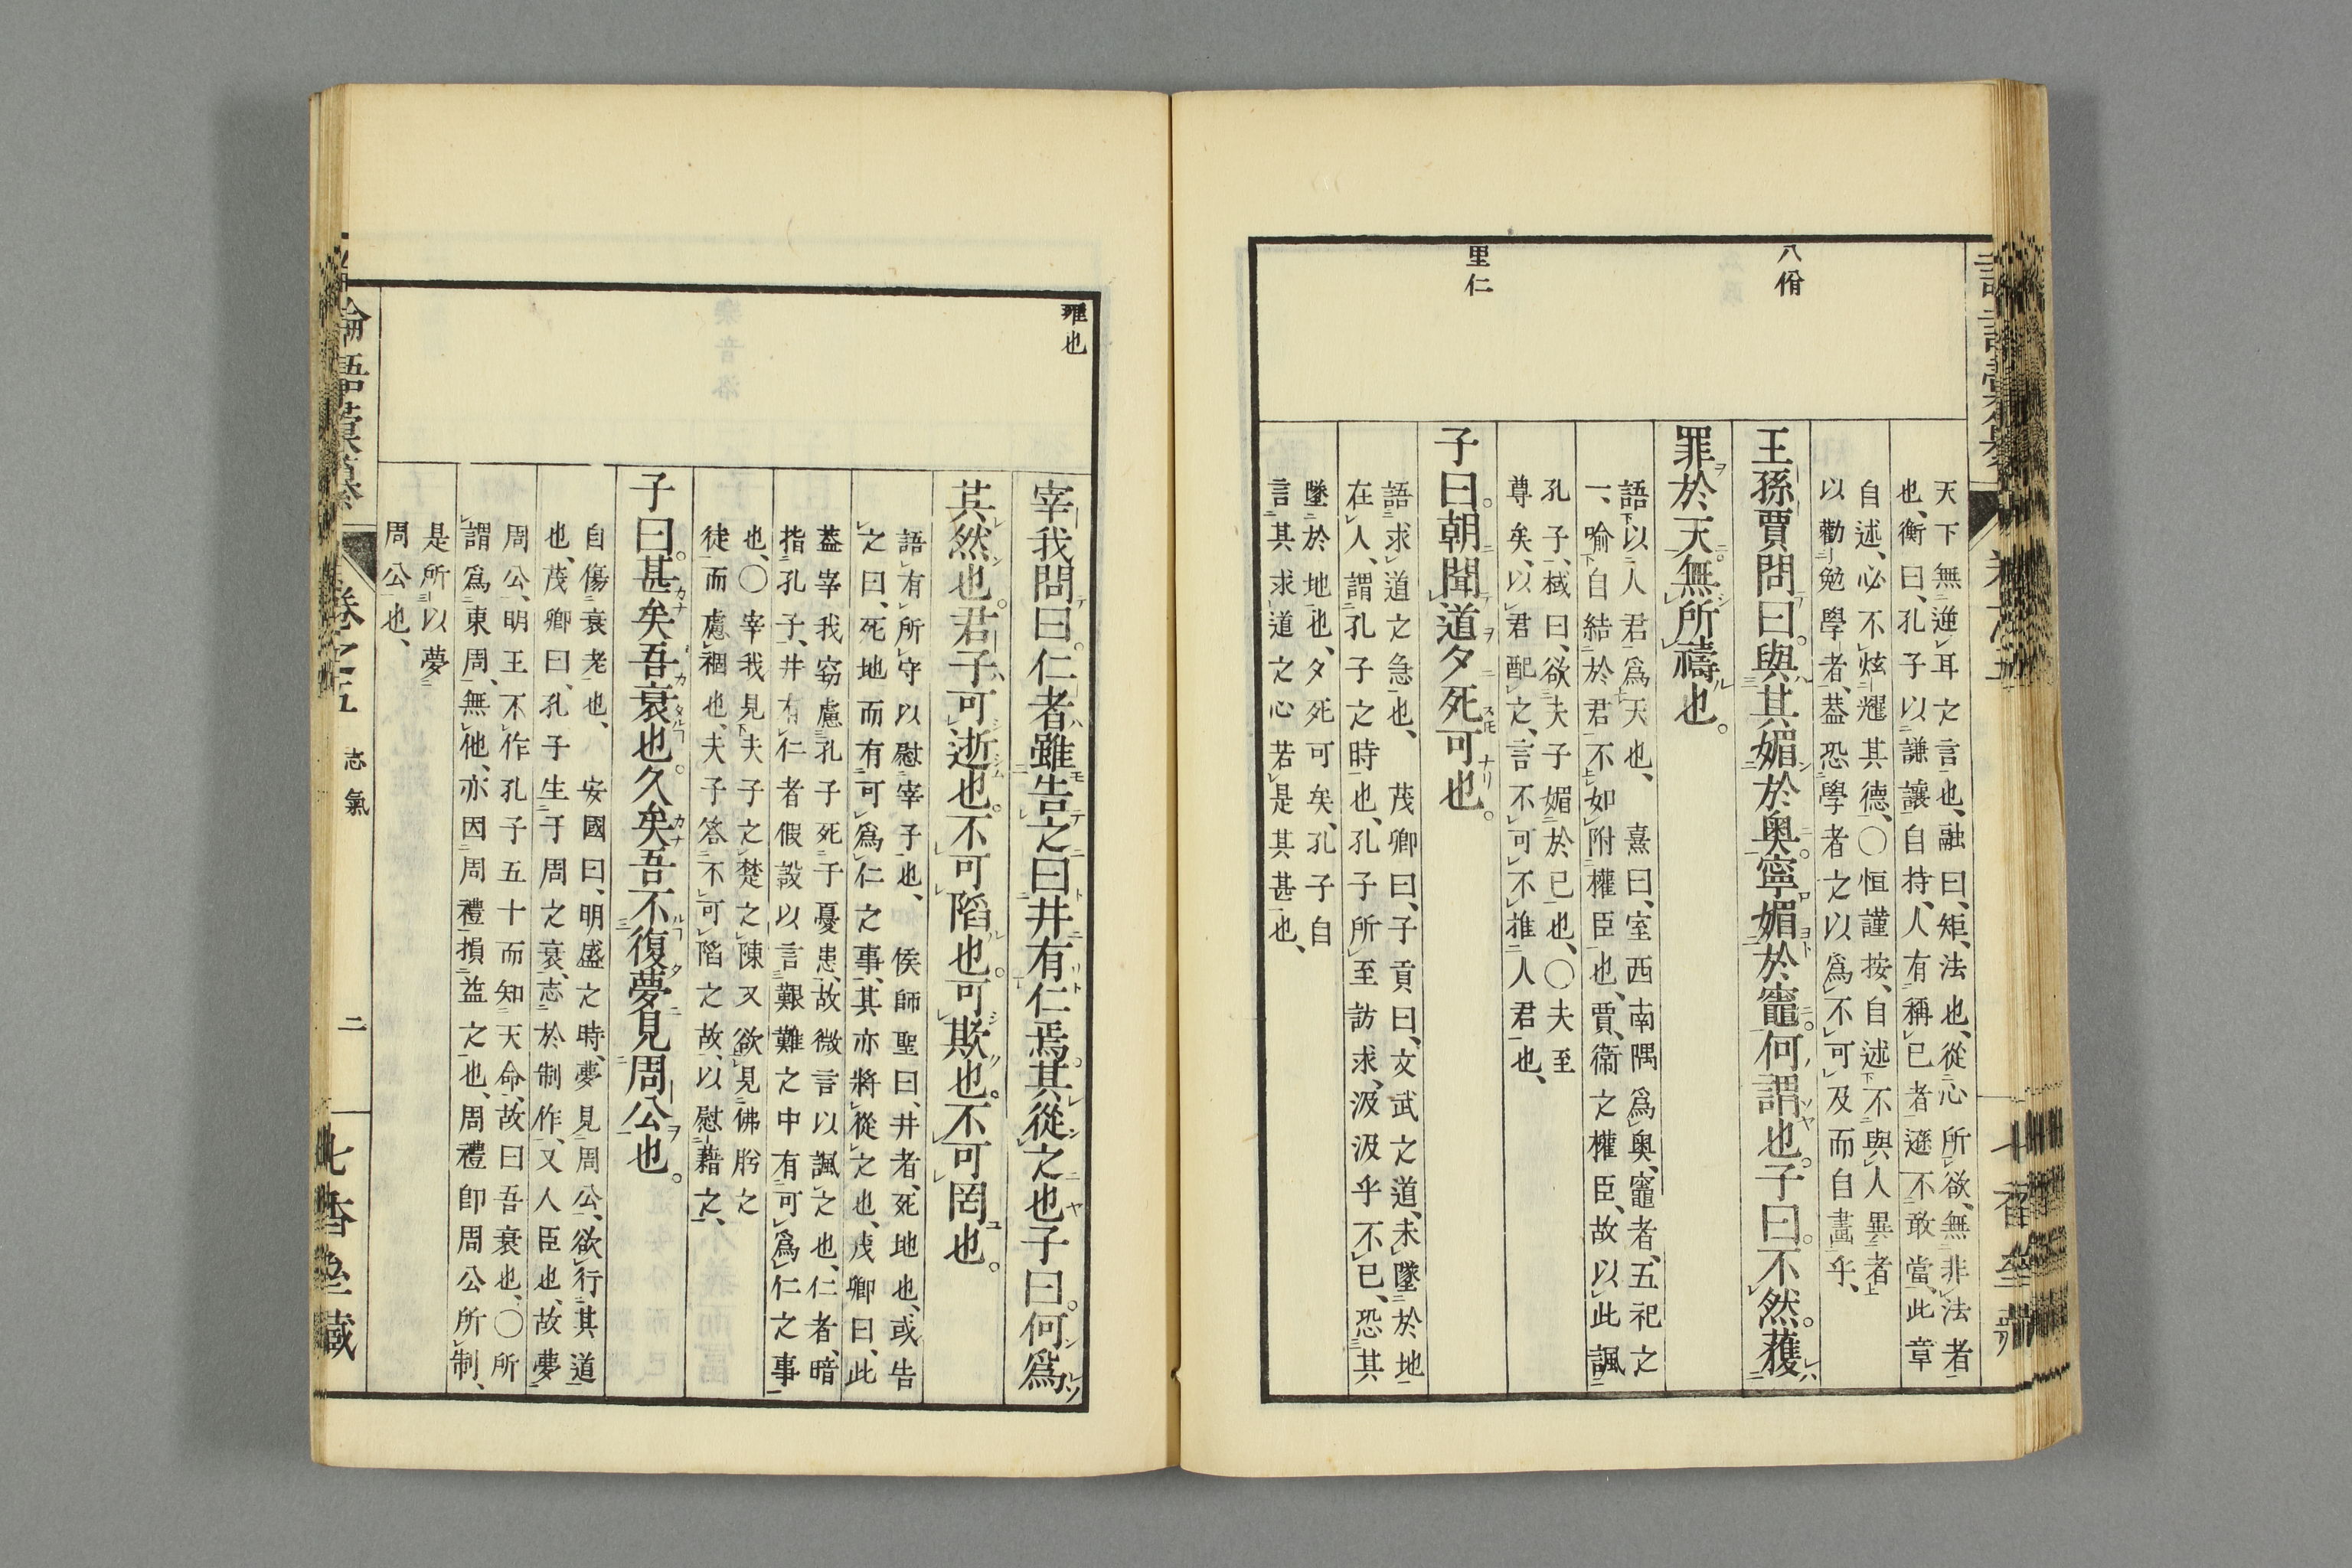 八佾
里仁
天下無逆耳之言也、融曰、矩、法也、從心所欲、無非法者
也、衡曰、孔子以謙讓自持、人有稱已者遜不敢當、此章
自述、必不炫耀其德、○恒謹按、自述不與人異者
以勸勉學者、葢恐學者之以爲不可及而自畫乎、
王孫賈問曰。與其媚於奥。寧媚於竈。何謂也。子曰。不然。獲
罪於天。無所禱也。
語以人君爲天也、 熹曰、室西南隅爲奥、竈者、五祀之
一、喻自結於君不如附權臣也、賈、衞之權臣、故以此諷
孔子、栻曰、欲夫子媚於已也、○夫至
尊矣、以君配之、言不可不推人君也、
子曰。朝聞道夕死可也。
語求道之急也、 茂卿曰、子貢曰、文武之道、未墜於地
在人、謂孔子之時也、孔子所至訪求、汲汲乎不已、恐其
墜於地也、夕死可矣、孔子自
言其求道之心若是其甚也、
雍也
宰我問曰。仁者雖告之曰井有仁焉。其從之也子曰。何爲
其然也。君子可逝也。不可陷也。可欺也。不可罔也。
語有所守以慰宰子也、 侯師聖曰、井者、死地也、或告
之曰、死地而有可爲仁之事、其亦將從之也、茂卿曰、此
葢宰我窃慮孔子死于憂患、故微言以諷之也、仁者、暗
指孔子、井有仁者假設以言艱難之中有可爲仁之事
也、○宰我見夫子之楚之陳又欲見佛肸之
徒而慮禍也、夫子答不可陷之故、以慰藉之、
子曰。甚矣吾衰也。久矣吾不復夢見周公也。
自傷衰老也、 安國曰、明盛之時、夢見周公、欲行其道
也、茂卿曰、孔子生于周之衰、志於制作、又人臣也、故夢
周公、明王不作孔子五十而知天命、故曰吾衰也、○所
謂爲東周、無他、亦因周禮損益之也、周禮卽周公所制、
是所以夢
周公也、
論語 卷之五 志氣 二 七香齋藏